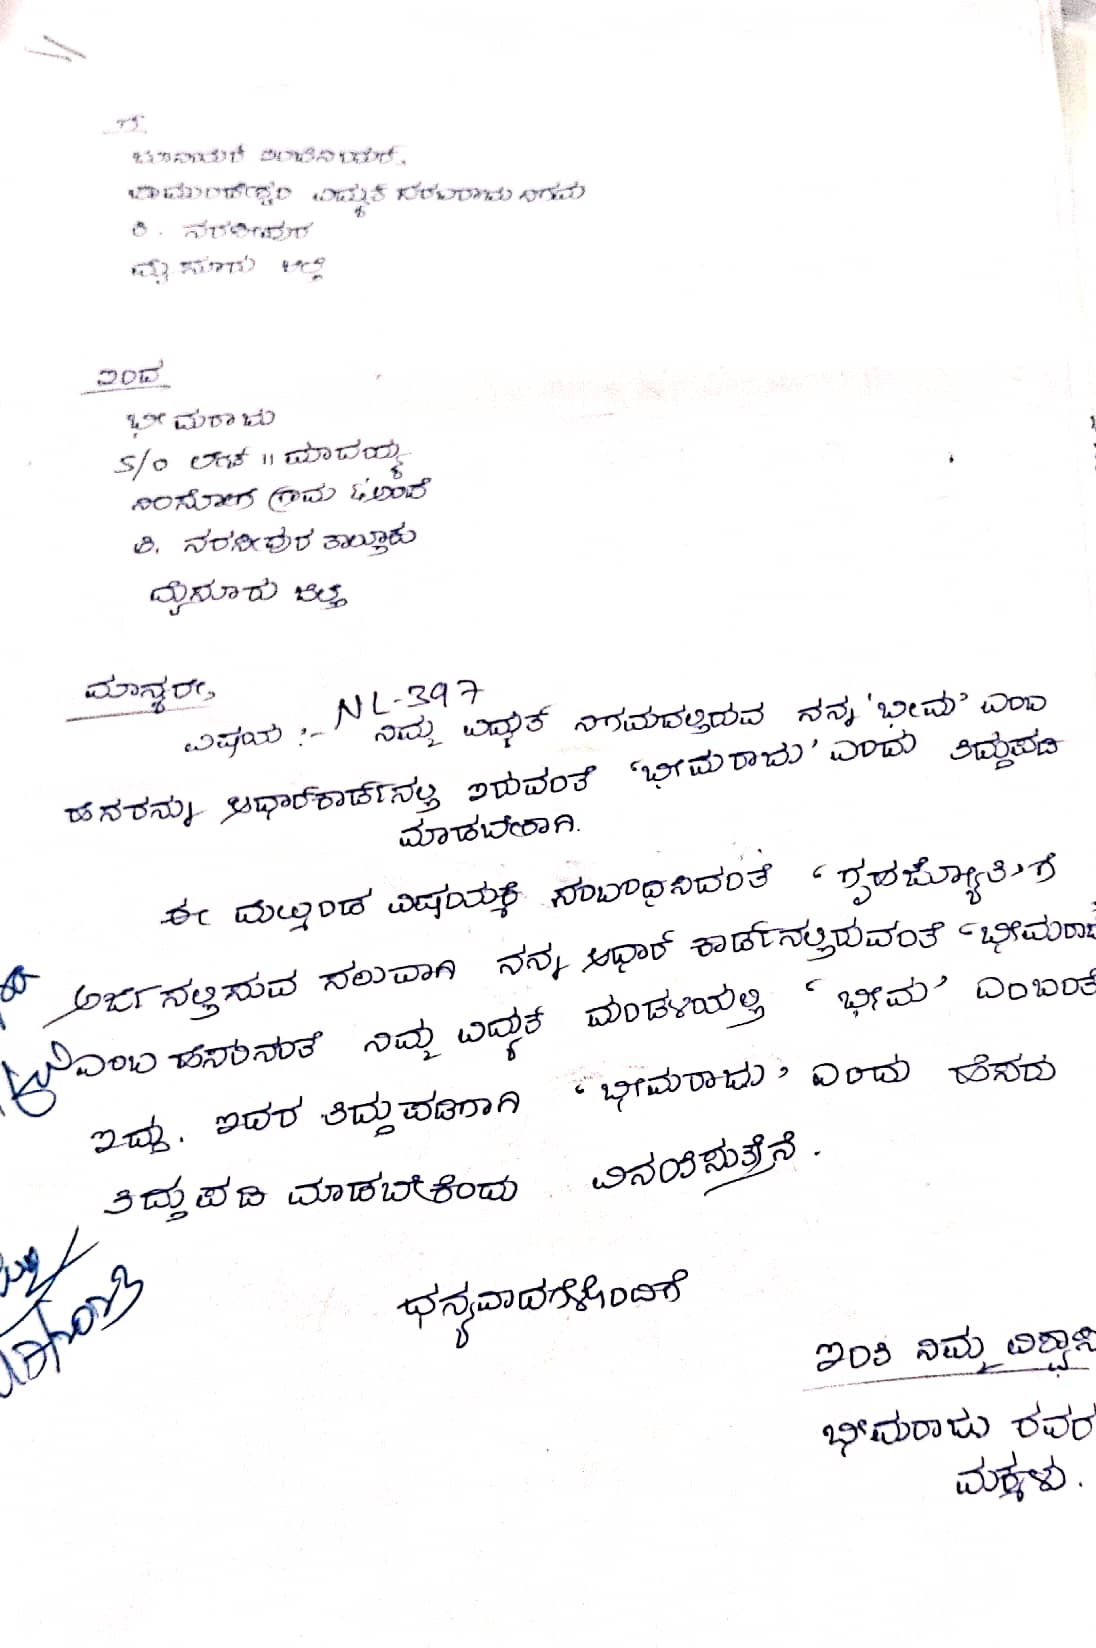 ಗೆ
ಜೂನಿಯರ್ ಇಂಜಿನಿಯರ್,
ಚಾಮುಂಡೇಶ್ವರಿ ವಿದ್ಯುತ್ ಸರಬರಾಜು ನಿಗಮ
ಟಿ. ನರಸೀಪುರ
ಮೈಸೂರು ಜಿಲ್ಲೆ
ಇಂದ
ಭೀಮರಾಜು
S/o ಲೇಟ್ || ಮಾದಯ್ಯ
ಗ್ರಾಮ
ಟಿ. ನರಸೀಪುರ ತಾಲ್ಲೂಕು
ಮೈಸೂರು ಜಿಲ್ಲೆ
ಮಾನ್ಯರೇ,
NL-397
ವಿಷಯ :- ನಿಮ್ಮ ವಿದ್ಯುತ್ ನಿಗಮದಲ್ಲಿರುವ ನನ್ನ 'ಭೀಮ' ಎಂಬ
ಹೆಸರನ್ನು ಆಧಾರ್‌ಕಾರ್ಡ್‌ನಲ್ಲಿ ಇರುವಂತೆ 'ಭೀಮರಾಜು' ಎಂದು ತಿದ್ದುಪಡಿ
ಮಾಡಬೇಕಾಗಿ.
ಈ ಮೇಲ್ಕಂಡ ವಿಷಯಕ್ಕೆ ಸಂಬಂಧಿಸಿದಂತೆ 'ಗೃಹಜ್ಯೋತಿ'ಗೆ
ಅರ್ಜಿಸಲ್ಲಿಸುವ ಸಲುವಾಗಿ ನನ್ನ ಆಧಾರ್ ಕಾರ್ಡ್‌ನಲ್ಲಿರುವಂತೆ 'ಭೀಮರಾಜು
ಎಂಬ ಹೆಸರಿನಂತೆ ನಿಮ್ಮ ವಿದ್ಯುತ್ ಮಂಡಳಿಯಲ್ಲಿ 'ಭೀಮ' ಎಂಬಂತೆ
ಇದ್ದು. ಇದರ ತಿದ್ದುಪಡಿಗಾಗಿ 'ಭೀಮರಾಜು' ಎಂದು ಹೆಸರು
ತಿದ್ದುಪಡಿ ಮಾಡಬೇಕೆಂದು ವಿನಯಿಸುತ್ತೇನೆ.
ಧನ್ಯವಾದಗಳೊಂದಿಗೆ
ಇಂತಿ ನಿಮ್ಮ ವಿಶ್ವಾಸಿ
ಭೀಮರಾಜು ರವರ
ಮಕ್ಕಳು.